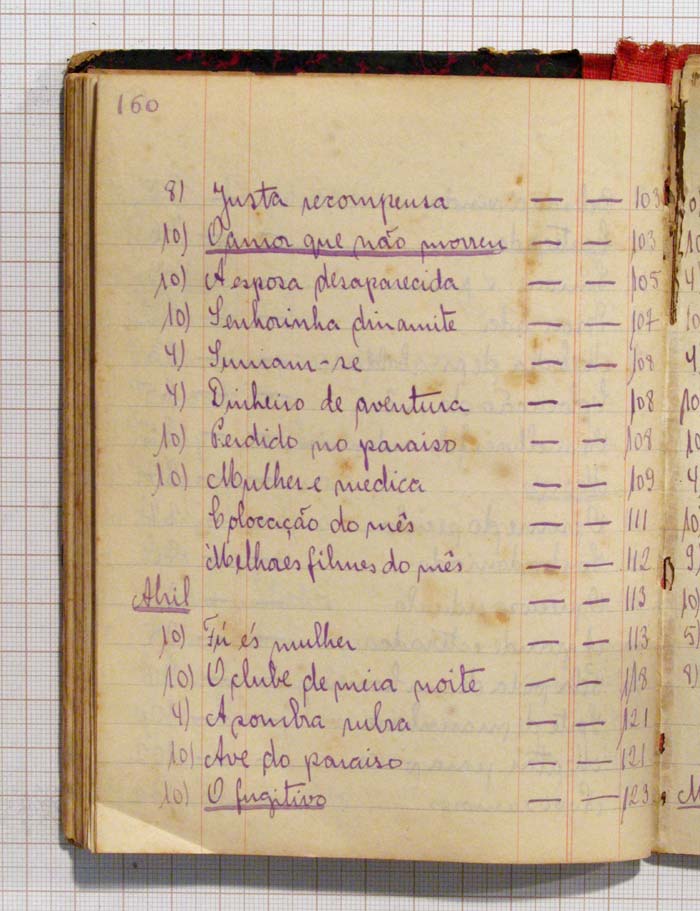 160
8) Justa recompensa — — 103
10) O amor que não morreu — — 103
10) A esposa desaparecida — — 105
10) Senhorinha dinamite — — 107
4) Sumiam-se — — 108
4) Dinheiro de aventura — — 108
10) Perdido no paraiso — — 108
10) Mulher e medica — — 109
Colocação do mês — — 111
Melhaes filmes do mês — — 112
Abril — — 113
10) Tú és mulher — — 113
10) O clube de meia noite — — 118
4) A sombra rubra — — 121
10) Ave do paraiso — — 121
10) O fugitivo — — 123